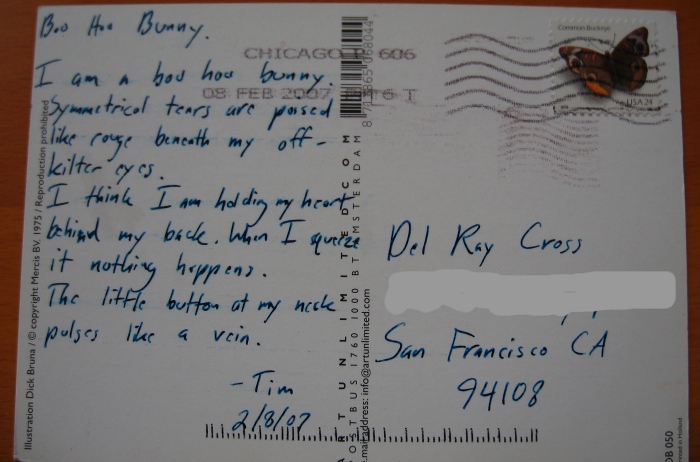 Boo Hoo Bunny.
I am a boo hoo bunny.
Symmetrical tears are poised
like rouge beneath my off-
kilter eyes.
I think I am holding my heart
behind my back. When I squeeze
it nothing happens.
The little button at my neck
pulses like a vein.
-Tim
2/8/07
Illustration Dick Bruna / © copyright Mercis BV, 1975 / Reproduction prohibited
CHICAGO IL 606
08 FEB 2007 PM 6 T
Common Buckeye
USA 24
ART UNLIMITED.COM
POSTBUS 1760 1000 BT AMSTERDAM
e.mail address: info@artunlimited.com
Del Ray Cross
San Francisco CA
94108
DB 050